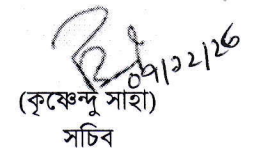 ০৭/১২/২৫
(কৃষ্ণেন্দু সাহা)
সচিব